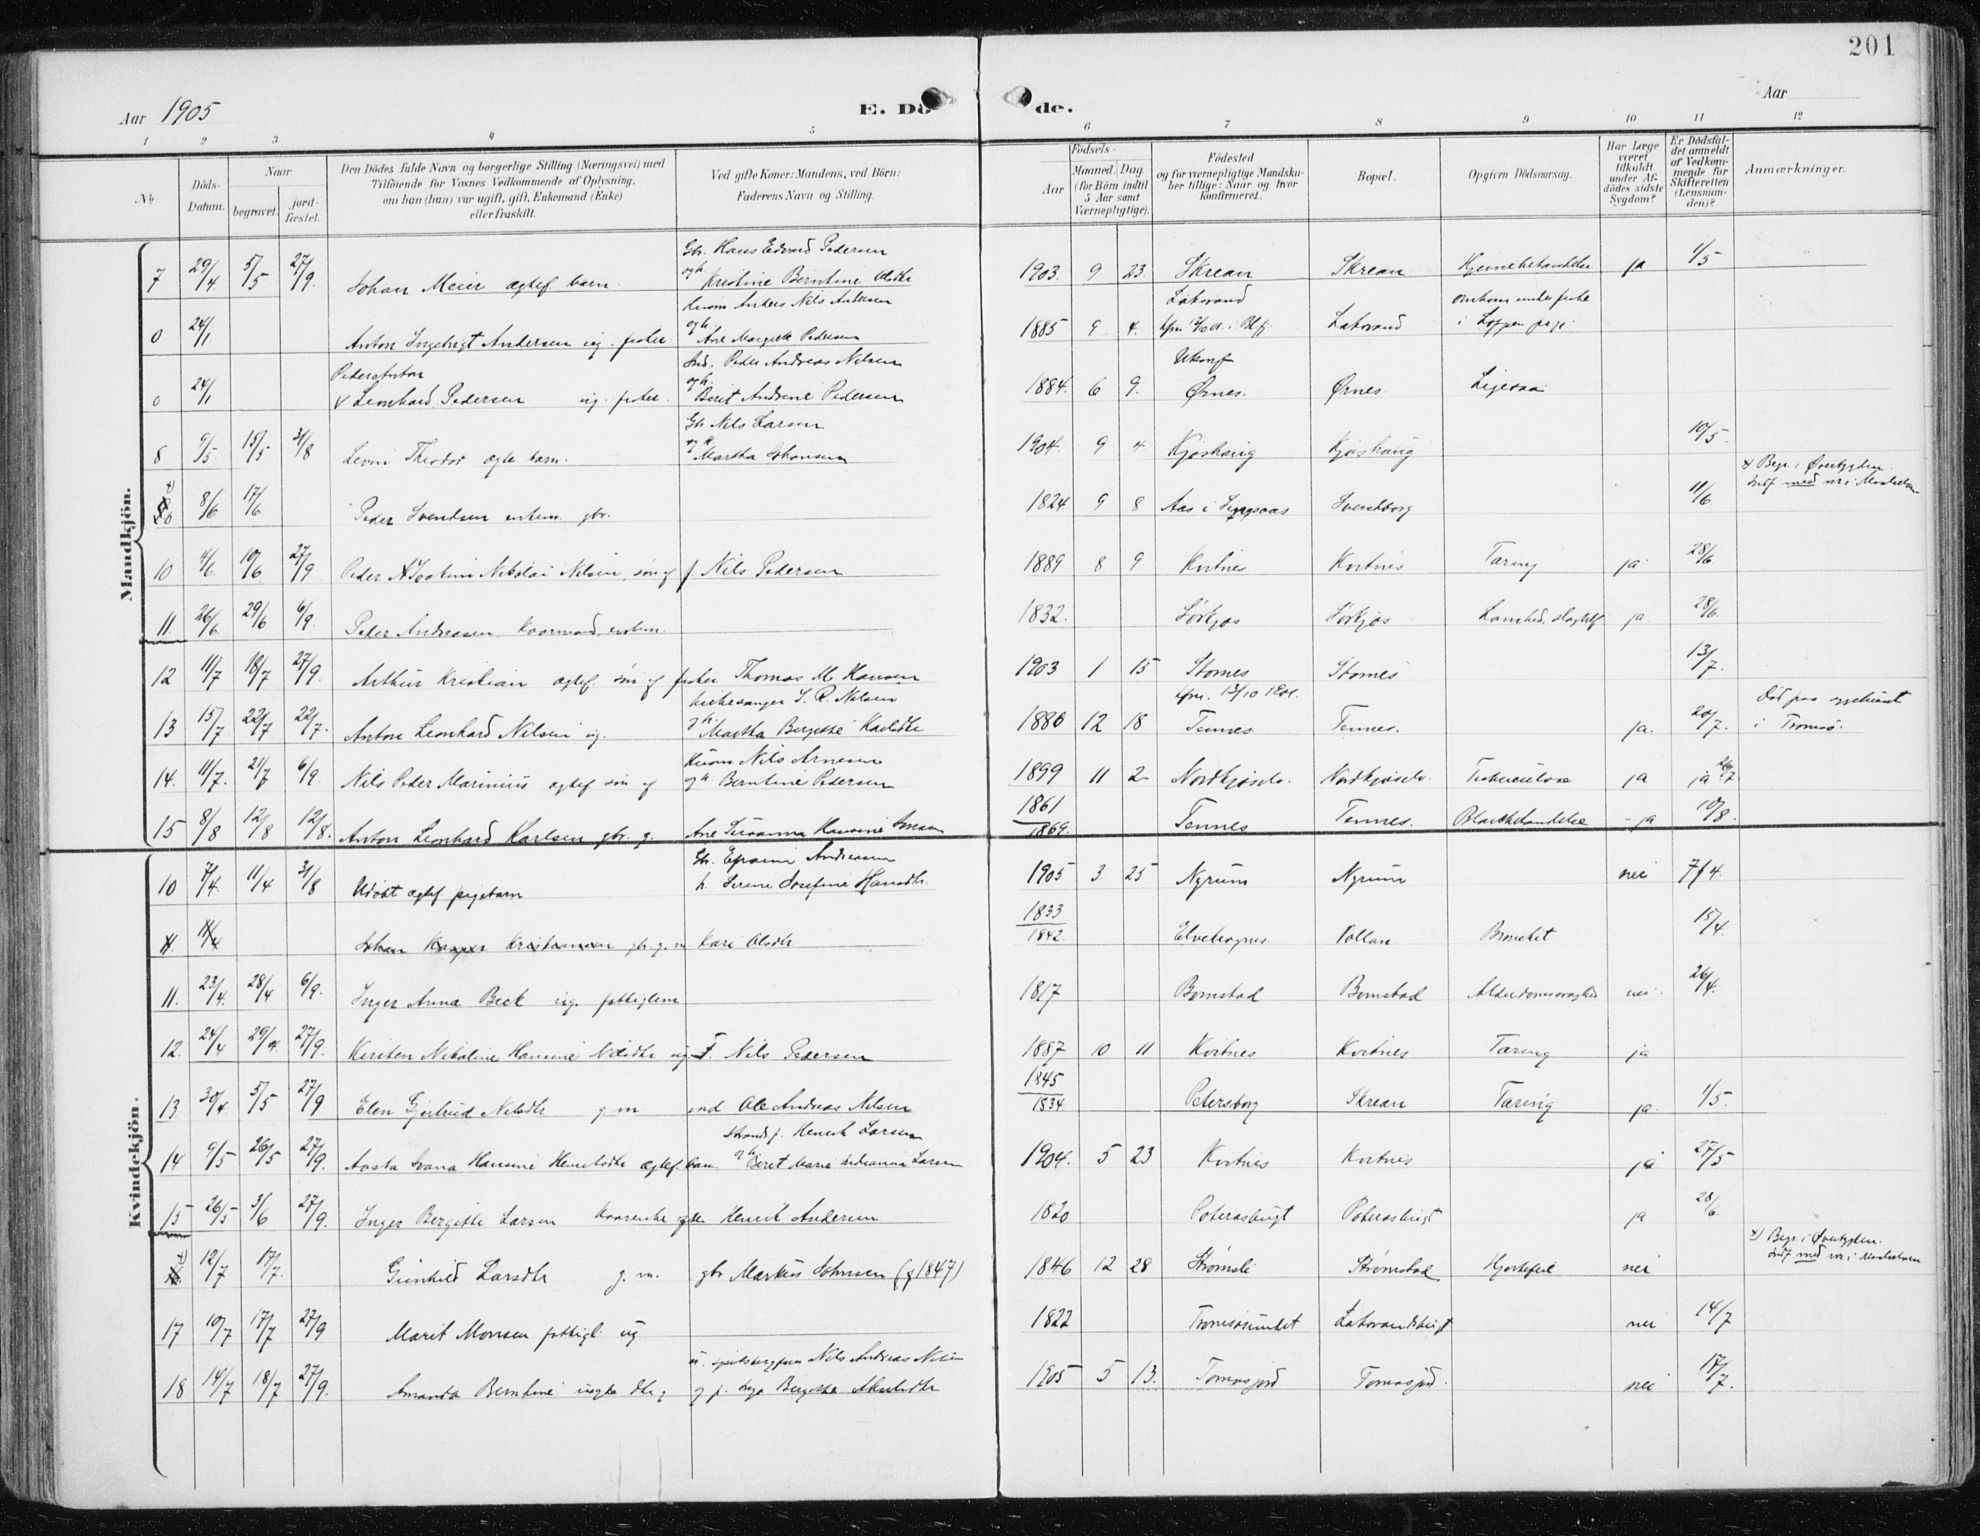 201
Aar 1905
E. Dö de.
Aar
1 2 3 4 5 6 7 8 9 10 11 12
No
Döds-Datum.
Naar
begravet.
jord-fæstet.
Den Dödes fulde Navn og borgerlige Stilling (Næringsvei) med Tilföiende for Voxnes Vedkommende af Oplysning, om han (hun) var ugift, gift, Enkemand (Enke) eller fraskilt.
Ved gifte Koner: Mandens, ved Börn: Faderens Navn og Stilling.
Födsels-
Aar
Maaned. Dag.
(for Börn indtil 5 Aar samt Værnepligtige).
Födested og for værnepligtige Mandskaber tillige: Naar og hvor Konfirmeret.
Bopæl.
Opgiven Dödsaarsag.
Har Læge været tilkaldt under Afdödes sidste Sygdom?
Er Dödsfaldet anmeldt af Vedkommende for Skifteretten (Lensmanden)?
Anmærkninger.
Mandkjön.
Gbr. Hans Edvard Pedersen
7 29/4 5/5 27/9. Johan Meier ægtef barn. og h Kristine Berntine Olsdtr 1903. 9 23. Skrean Skrean Hjernebetændelse ja 1/5
Anders Nils Andersen Lakvand omkom under fiske
0 24/1 Anton Ingebrigt Andersen ug. fisker og h. Ane Margrete Pedersen 1885 9 4. Lakvand i Loppen
Peder Anton Peder Andreas Nilsen Ukonf
0 24/1 Leonhard Pedersen ug. fisker. og h. Berit Andrine Pedersen 1884. 6 9. Ørnes. Ørnes. Ligesaa
Gbr Nils Larsen
8 9/5. 15/5 31/8 Levin Theodor ægte barn. og h Martha Johansen 1904. 9 4 Kjoshaug Kjoshaug 10/5.
x) Begr. i Øverbygden.
0 8/6 17/6 Peder Svendsen enkem. gbr. 1824 9 8 Aas i Singsaas Svendborg 11/6 Indf med nr i
10 4/6. 10/6 27/9 Peder Joakim Nikolai Nilsen, søn af f Nils Pedersen 1889 8 9 Kvitnes Kvitnes Tæring ja 28/6
11. 26/6. 29/6 6/9. Peder Andreasen kaarmand, enkem. 1832. Sørkjos Sørkjos ja 28/6.
12 11/7 18/7 27/9. Arthur Kristian ægtef. søn af fisker Thomas M. Hansen 1903 1 15 Stornes Stornes 13/7.
kirkesanger S. R. Nilsen Død paa sygehuset
13 15/7 22/7 22/7. Anton Leonhard Nilsen ug. og h. Martha Bergitte 1886 12 18 Tennes Tennes. ja. 20/7. i Tromsø.
Nils Arnesen
14. 11/7. 21/7 6/9. Nils Peder Marinius ægtef søn af og h. Berntine Pedersen 1899 11 2 Nordkjoselv. Nordkjoselv. Tuberculose ja ja
15 8/8 12/8 12/8. Anton Leonhard Karlsen gbr. g. Ane Susanna Hansine 1861/1869. Tennes Tennes. ja 10/8.
Kvindekjön.
Gbr. Efraim Andreassen
10 7/4. 11/4 31/8 Udøbt ægtef pigebarn h. Serine Josefine Hansdtr. 1905 3 25 Nyrum Nyrum nei 7/4.
11 11/4 Johan Kasper Kristiansen gbr. g. m Kari Olsdtr 1833/1842. Elvebognes Pollan Bronchit 15/4.
11. 23/4. 28/4 6/9. Inger Anna Beck ug. fattiglem 1817 Bomstad Bomstad Alderdomssvaghed nei. 26/4.
12. 24/4 29/4. 27/9. Kirsten Nikoline Hansine Nilsdtr ug F. Nils Pedersen 1887 10 11 Kvitnes Kvitnes Tæring ja
13 30/4. 5/5 27/9 Elen Gjertrud Nilsdtr g m ind Ole Andreas Nilsen 1845/1834. Petersborg Skrean Tæring ja. 1/5.
Strands. Henrik Larsen
14 9/5 26/5 27/9. Aasta Svana Hansine Henriksdtr ægtef. barn og h. Beret Marie Larsen 1904. 5 23 Kvitnes Kvitnes ja 27/5
15 26/5 3/6 27/9. Inger Bergitte Larsen kaarenke efter Henrik Andersen 1820 Poterasbugt Poterasbugt ja 28/6.
x) Begr. i Øverbygden.
12/7 17/7. Gunhild Larsdtr g. m. gbr Markus Johnsen (f 1847) 1846 12 28 Strømsli Strømstad Hjertefeil nei Indf med nr. i
17 10/7 17/7 27/9 Marit Monsen fattigl. ug 1822 Tromsøsundet Lakvandsbugt nei 14/7
Nils Andreas Nilsen
18 14/7 18/7 27/9. Amanda Berntine uægte dtr af og p. Inga Bergitte 1905 5 13. Tomasjord Tomasjord. nei 17/7.